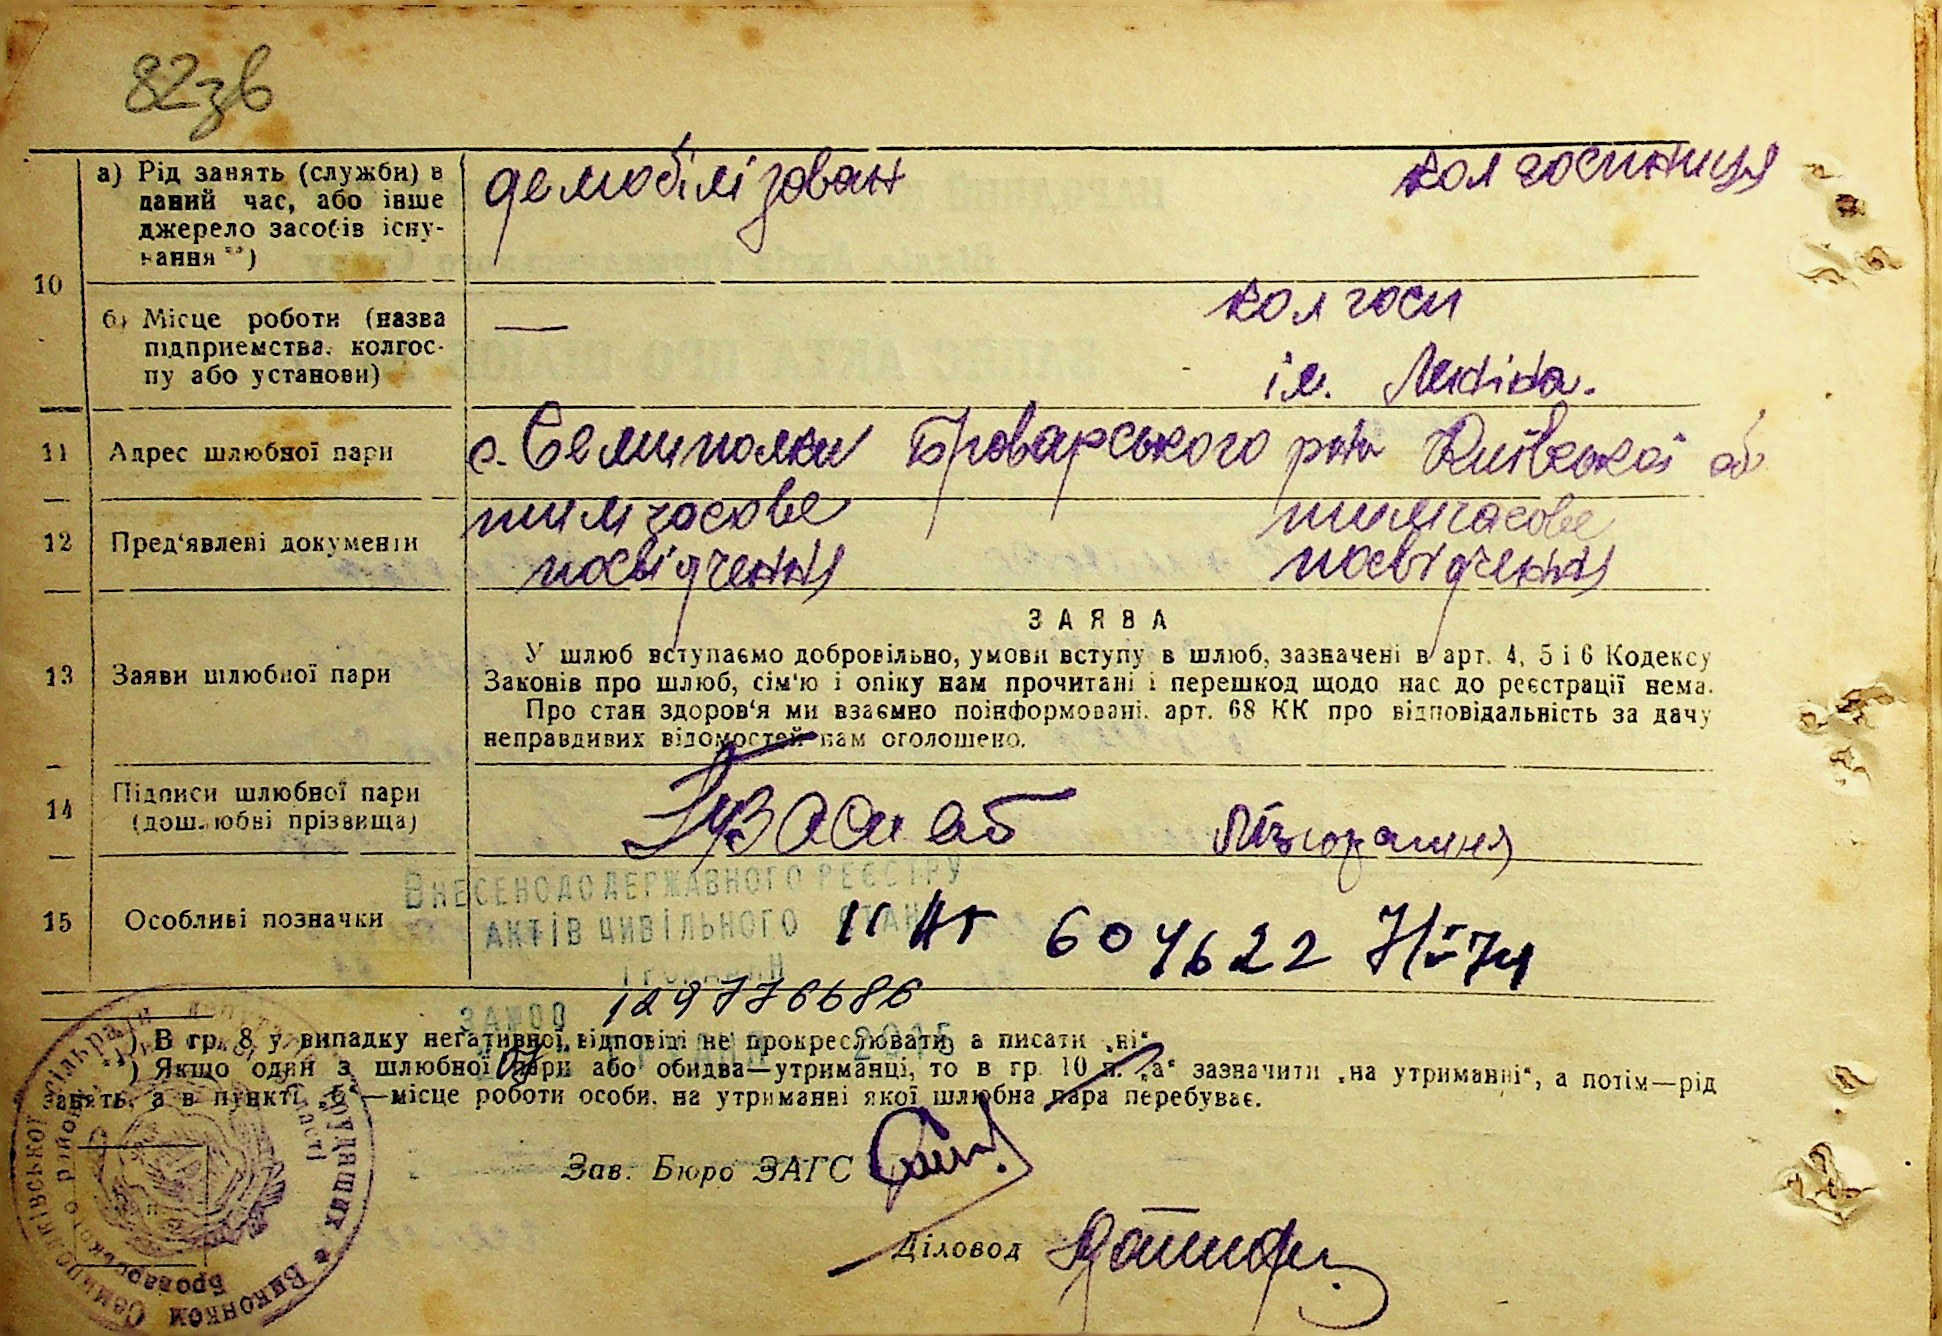 82зв
10
а) Рід занять (служби) в даний час, або інше джерело засобів існування **)
демобілізован
колгоспниця
б) Місце роботи (назва підприємства, колгоспу або установи)
—
колгосп
ім. Леніна.
11 Адрес шлюбної пари
с. Семиполки Броварського р-на Київської об
12 Пред'явлені документи
тимчасове
посвідчення
тимчасове
посвідчення
13 Заяви шлюбної пари
ЗАЯВА
У шлюб вступаємо добровільно, умови вступу в шлюб, зазначені в арт. 4, 5 і 6 Кодексу
Законів про шлюб, сім'ю і опіку нам прочитані і перешкод щодо нас до реєстрації нема.
Про стан здоров'я ми взаємно поінформовані, арт. 68 КК про відповідальність за дачу
неправдивих відомостей нам оголошено.
14 Підписи шлюбної пари
(дошлюбні прізвища)
15 Особливі позначки
ВНЕСЕНО ДО ДЕРЖАВНОГО РЕЄСТРУ
АКТІВ ЦИВІЛЬНОГО СТАНУ
ГРОМАДЯН
604622
129776686
2015
*) В гр. 8 у випадку негативної відповіді не прокреслювати, а писати „ні“.
**) Якщо один з шлюбної пари або обидва—утриманці, то в гр. 10 п. „а“ зазначити „на утриманні“, а потім—рід
занять, а в пункті „б“—місце роботи особи, на утриманні якої шлюбна пара перебуває.
Зав. Бюро ЗАГС
Діловод
Виконком Семиполківської сільради депутатів трудящих
Броварського району Київської області